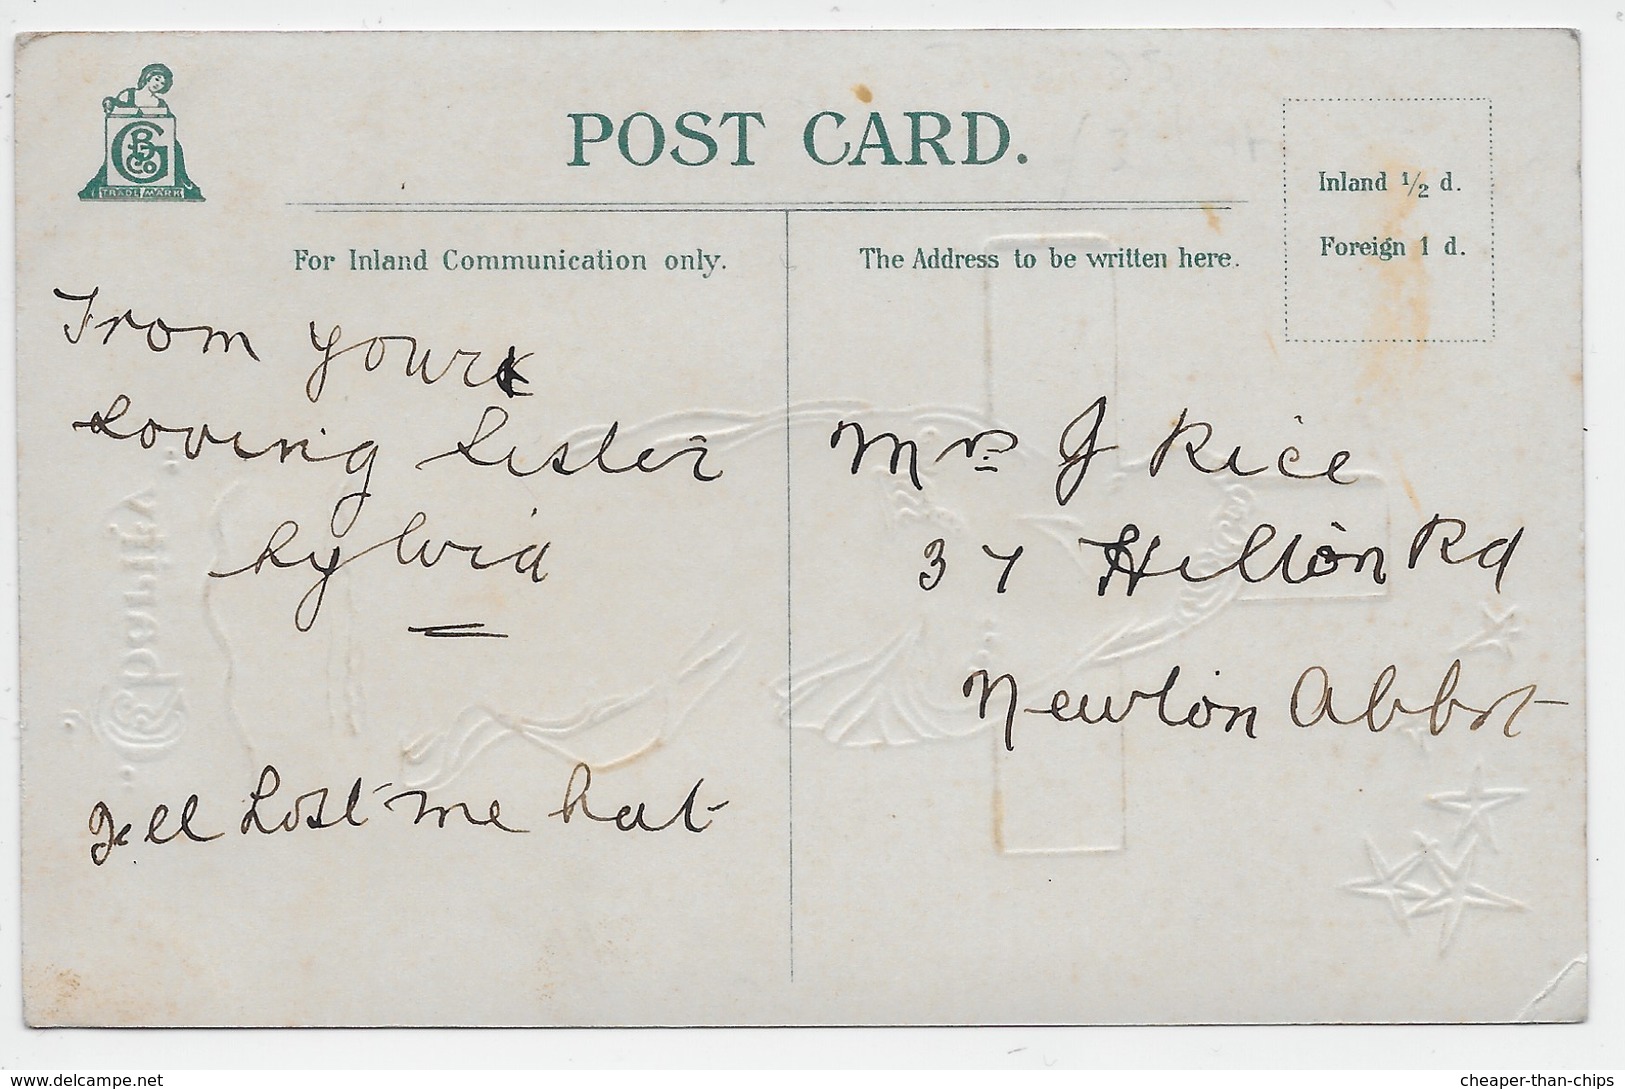 POST CARD.
G B & Co
TRADE MARK
Inland 1/2 d.
Foreign 1 d.
For Inland Communication only.
The Address to be written here.
From your
Loving Sister
Sylvia
Lost me hat
Mrs J Rice
37 Hilton Rd
Newton Abbot
delcampe.net
cheaper-than-chips